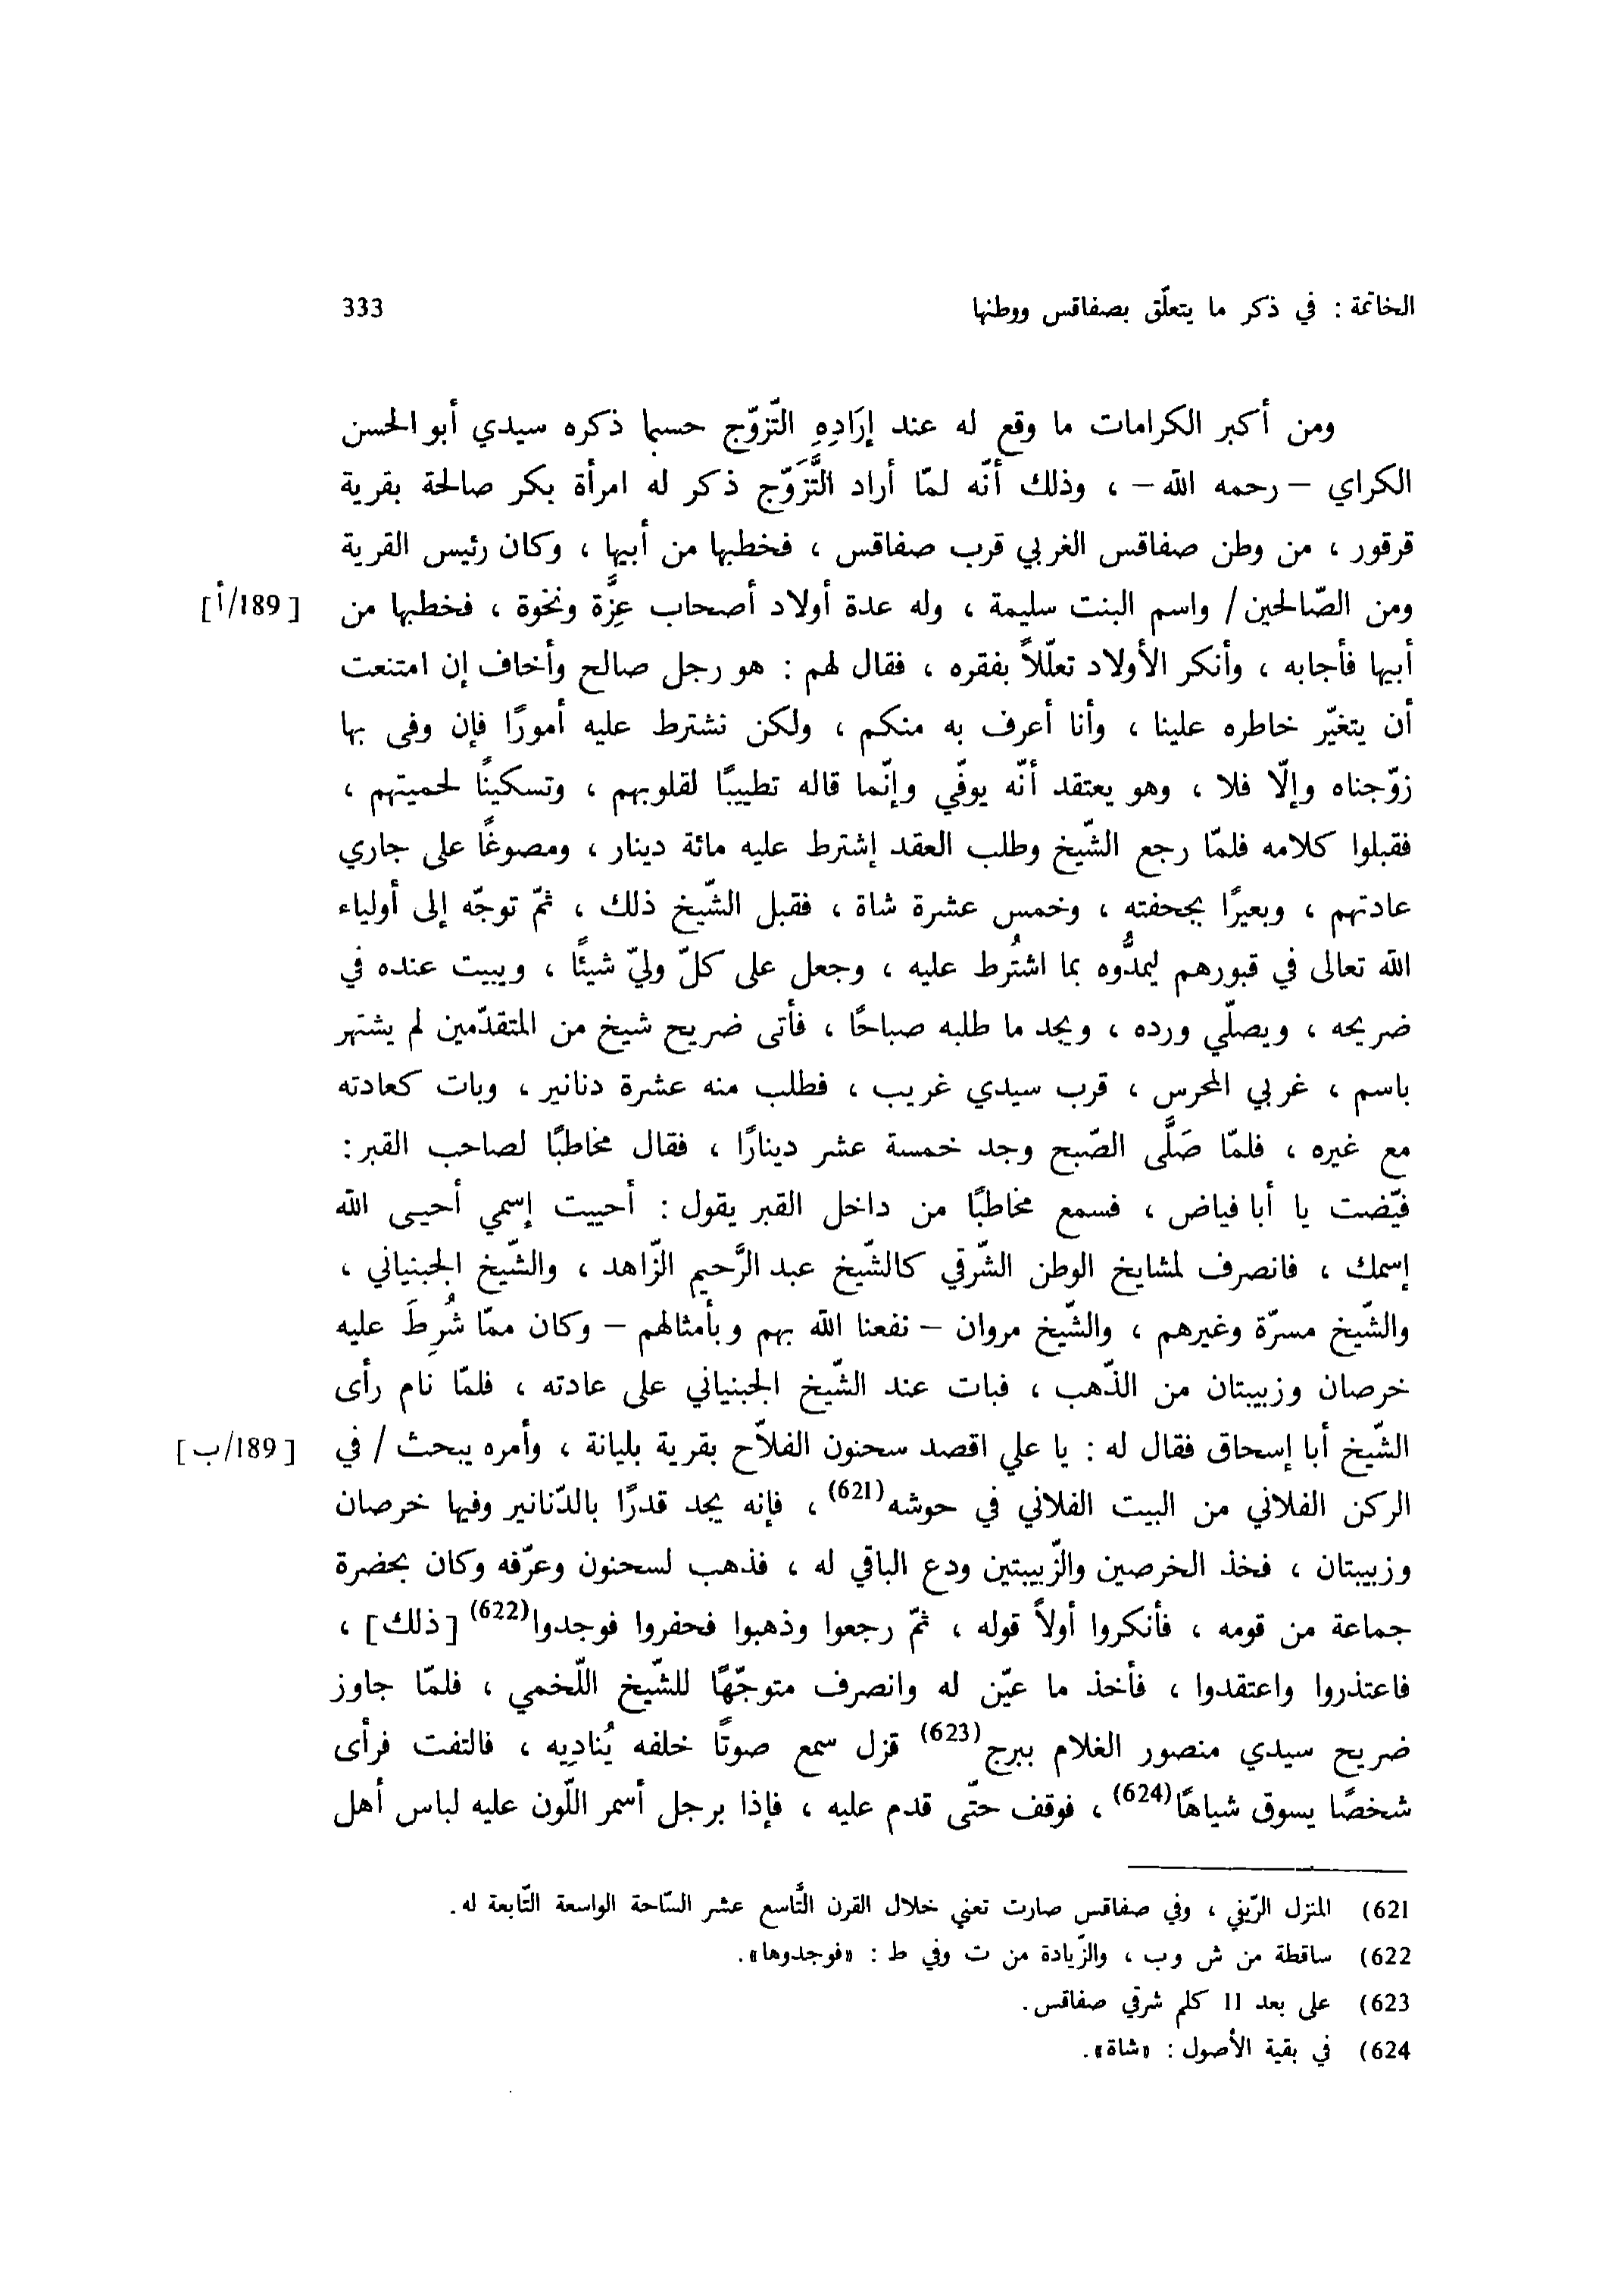 الخاتمة : في ذكر ما يتعلّق بصفاقس ووطنها 333
ومن أكبر الكرامات ما وقع له عند إرَادِهِ التّزوّج حسبما ذكره سيدي أبو الحسن
الكراي – رحمه الله – ، وذلك أنّه لمّا أراد التَّزَوّج ذكر له امرأة بكر صالحة بقرية
قرقور ، من وطن صفاقس الغربي قرب صفاقس ، فخطبها من أبيها ، وكان رئيس القرية
ومن الصّالحين / واسم البنت سليمة ، وله عدة أولاد أصحاب عِزَّة ونخوة ، فخطبها من [189/أ]
أبيها فأجابه ، وأنكر الأولاد تعلّلاً بفقره ، فقال لهم : هو رجل صالح وأخاف إن امتنعت
أن يتغيّر خاطره علينا ، وأنا أعرف به منكم ، ولكن نشترط عليه أمورًا فإن وفى بها
زوّجناه وإلّا فلا ، وهو يعتقد أنّه يوفّي وإنّما قاله تطييبًا لقلوبهم ، وتسكينًا لحميتهم ،
فقبلوا كلامه فلمّا رجع الشّيخ وطلب العقد إشترط عليه مائة دينار ، ومصوغًا على جاري
عادتهم ، وبعيرًا بجحفته ، وخمس عشرة شاة ، فقبل الشّيخ ذلك ، ثمّ توجّه إلى أولياء
الله تعالى في قبورهم ليمدُّوه بما اشتُرط عليه ، وجعل على كلّ وليّ شيئًا ، ويبيت عنده في
ضريحه ، ويصلّي ورده ، ويجد ما طلبه صباحًا ، فأتى ضريح شيخ من المتقدّمين لم يشتهر
باسم ، غربي المحرس ، قرب سيدي غريب ، فطلب منه عشرة دنانير ، وبات كعادته
مع غيره ، فلمّا صَلَّى الصّبح وجد خمسة عشر دينارًا ، فقال مخاطبًا لصاحب القبر :
فيّضت يا أبا فياض ، فسمع مخاطبًا من داخل القبر يقول : أحييت إسمي أحيى الله
إسمك ، فانصرف لمشايخ الوطن الشّرقي كالشّيخ عبد الرَّحيم الزّاهد ، والشّيخ الجبنياني ،
والشّيخ مسرّة وغيرهم ، والشّيخ مروان – نفعنا الله بهم وبأمثالهم – وكان ممّا شُرِطَ عليه
خرصان وزبيبتان من الذّهب ، فبات عند الشّيخ الجبنياني على عادته ، فلمّا نام رأى
الشّيخ أبا إسحاق فقال له : يا علي اقصد سحنون الفلاّح بقرية بليانة ، وأمره يبحث / في [189/ب]
الركن الفلاني من البيت الفلاني في حوشه(621) ، فإنه يجد قدرًا بالدّنانير وفيها خرصان
وزبيبتان ، فخذ الخرصين والزّبيبتين ودع الباقي له ، فذهب لسحنون وعرّفه وكان بحضرة
جماعة من قومه ، فأنكروا أولاً قوله ، ثمّ رجعوا وذهبوا فحفروا فوجدوا(622) [ذلك] ،
فاعتذروا واعتقدوا ، فأخذ ما عيّن له وانصرف متوجّهًا للشّيخ اللّخمي ، فلمّا جاوز
ضريح سيدي منصور الغلام ببرج(623) قزل سمع صوتًا خلفه يُنادِيه ، فالتفت فرأى
شخصًا يسوق شياهًا(624) ، فوقف حتّى قدم عليه ، فإذا برجل أسمر اللّون عليه لباس أهل
621) المنزل الرّيفي ، وفي صفاقس صارت تعني خلال القرن التَّاسع عشر السّاحة الواسعة التّابعة له.
622) ساقطة من ش وب ، والزّيادة من ت وفي ط : «فوجدوها».
623) على بعد 11 كلم شرقي صفاقس.
624) في بقية الأصول : «شاة».